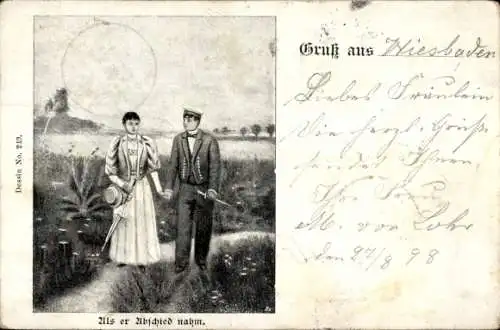 Gruß aus Wiesbaden
Liebes Fräulein
Die herzl. Grüße
sendet Ihnen
Ihr Frau
M. von Lohr
den 27/8 98
Dessin No. 213.
Als er Abschied nahm.